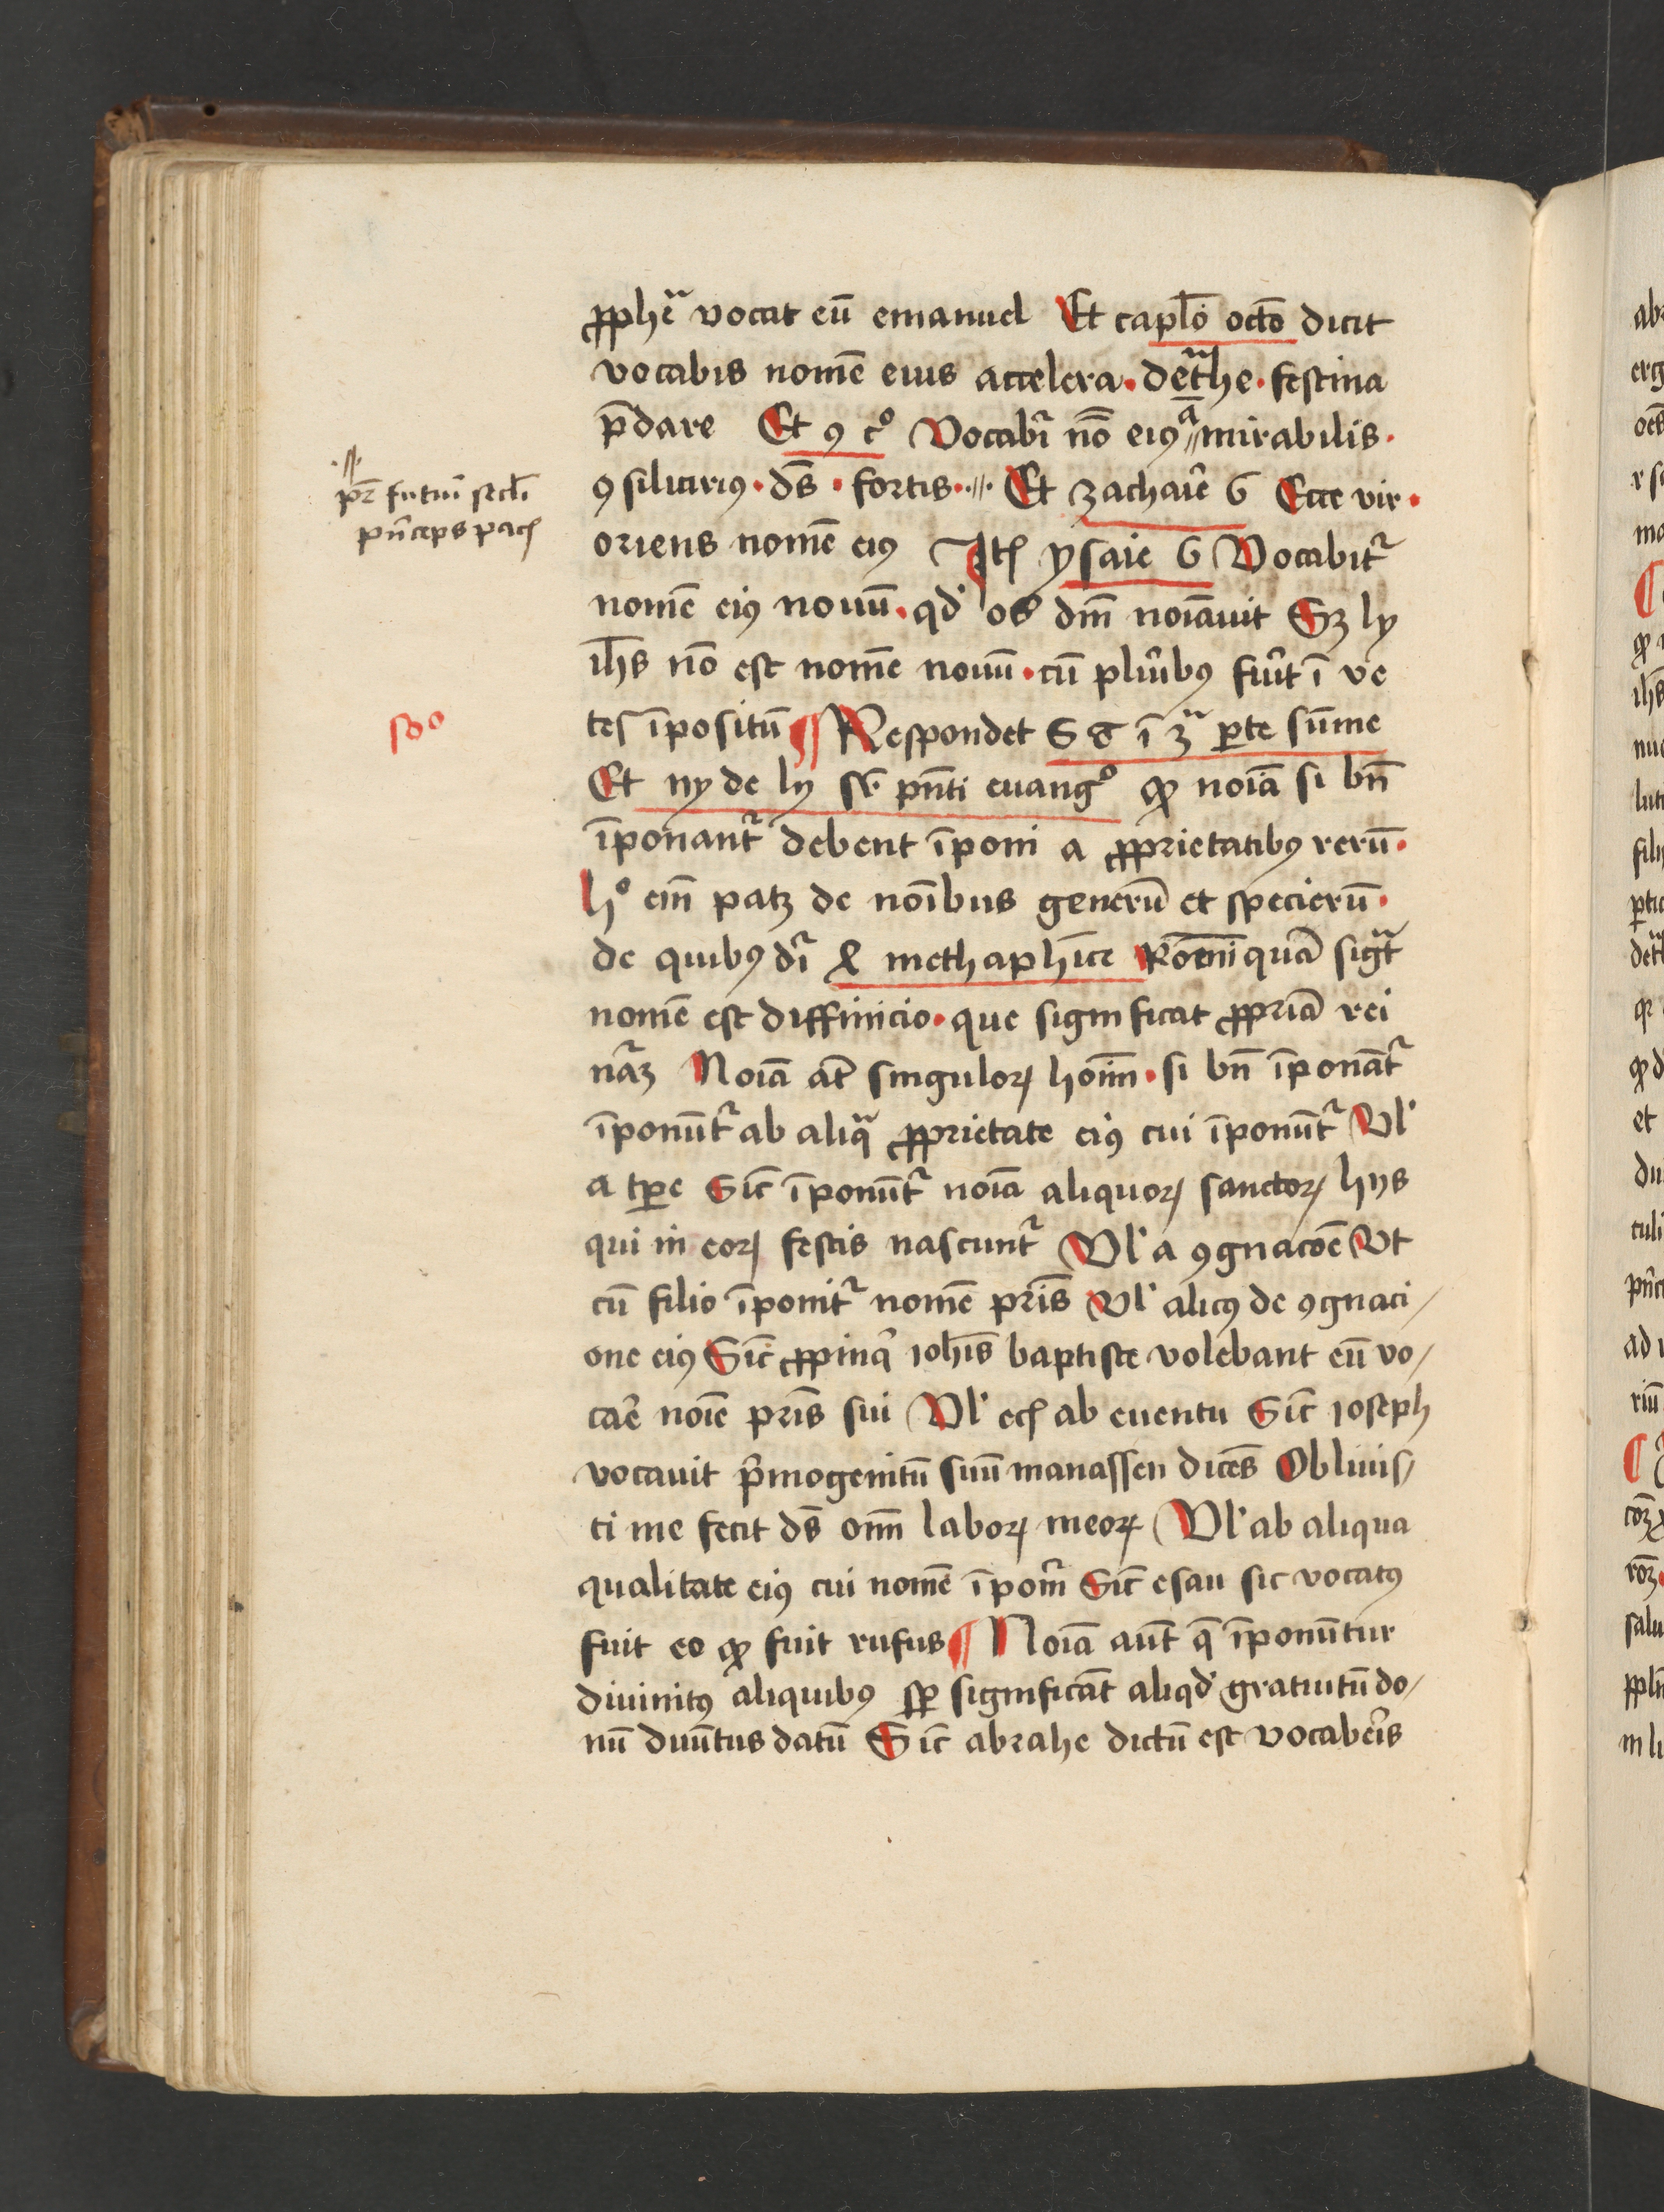 ꝓphᷓe vocat eū emanuel Et capl̄o octō dicit
vocabis nomē eius accelera · detᷓhe · festina
p̄dare Et ꝯ c° Vocabr̄ nōo eiꝰ ā mirabilis ·
ꝯsiliariꝰ · ds̄ · fortis · Et zachar̄e 6 Ecce vir ·
pr̄ futur̄i secl̄i
pn̄ceps pacꝭ
oriens nomē eiꝰ Itꝭ ysaie 6 Vocabitᷣ
nomē eiꝰ nouū · qd̓ os dn̄i noīauit Sꝫ ly
ih̄s nō est nomē nouū · cū plur̄ibꝰ fuīt ī ve
tes īpositū ¶ Respondet S Ꞇ ī 3ᷓ ꝑte sūme
sc̄do
Et ny de ly sr̄ pn̄ti euang° ꝙ noīa si bn̄
īponantᷣ debent īponi a ꝓprietatibꝰ rerū ·
h° em̄ patꝫ de noībus generū et specierū ·
de quibꝰ dr̄ 4 methaph̄ice Rōem̄ quā sigᷓt
nomē est diffinicio · que significat ꝓpriā rei
nāꝫ Noīa at̄ singuloꝝ hoīm · si bn̄ īponātᷣ
īponūtᷣ ab aliqᷓ ꝓprietate eiꝰ cui īponūtᷣ Vl̓
a tꝑe Sic̄ īponūtᷣ noīa aliquoꝝ sanctoꝝ hijs
qui in eoꝝ festis nascuntᷣ Vl̓ a ꝯgnacōe Vt
cū filio īponitᷣ nomē pr̄is Vl̓ alicꝰ de ꝯgnaci/
one eiꝰ Sic̄ ꝓpinq̓ ioh̄is baptiste volebant eū vo/
car̄e noīe pr̄is sui Vl̓ ecꝭ ab euentu Sic̄ ioseph
vocauit pͥmogenitū suū manassen dicēs Obliuis/
ci me fecit ds̄ om̄ laboꝝ meoꝝ Vl̓ ab aliqua
qualitate eiꝰ cui nomē īponīᷣ Sic̄ esau sic vocatꝰ
fuit eo ꝙ fuit rufus ¶ Noīa aūt q̄ īponūntur
diuinitꝰ aliquibꝰ sꝑ significāt aliqd̓ gratuitū do/
nū diuītus datū Sic̄ abrahe dictū est vocabeīs